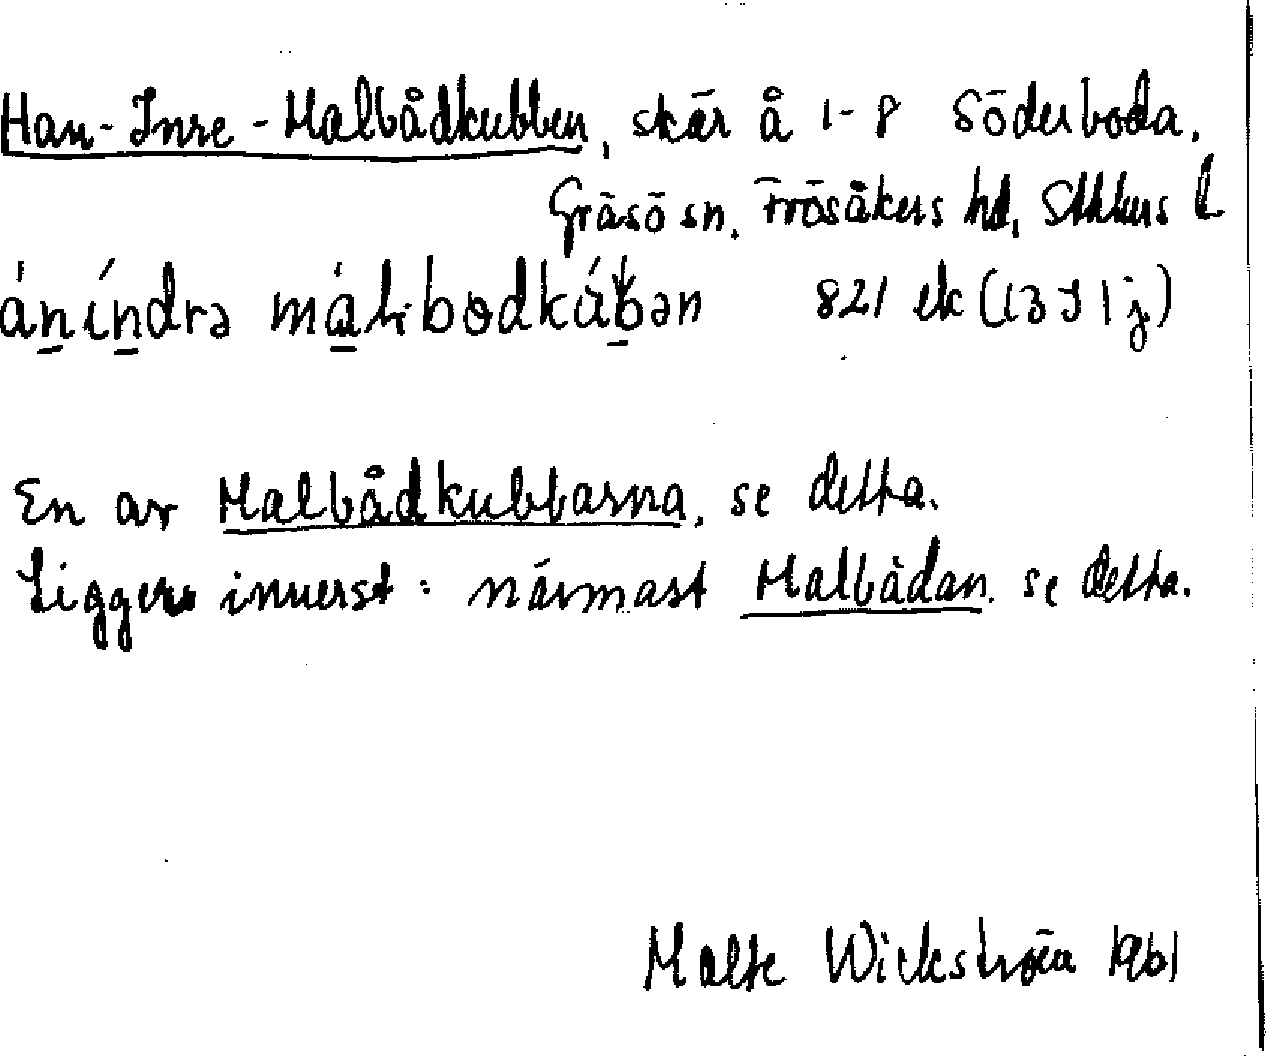 Han-Inre-Malbådkubben, skär å 1-8 Söderboda.
Gräsö sn. Frösåkers hd, Sthlms l
821 ek (13I1j)
En av Malbådkubbarna, se detta.
Ligger innerst: närmast Malbådan. se detta.
Malte Wickström 1961